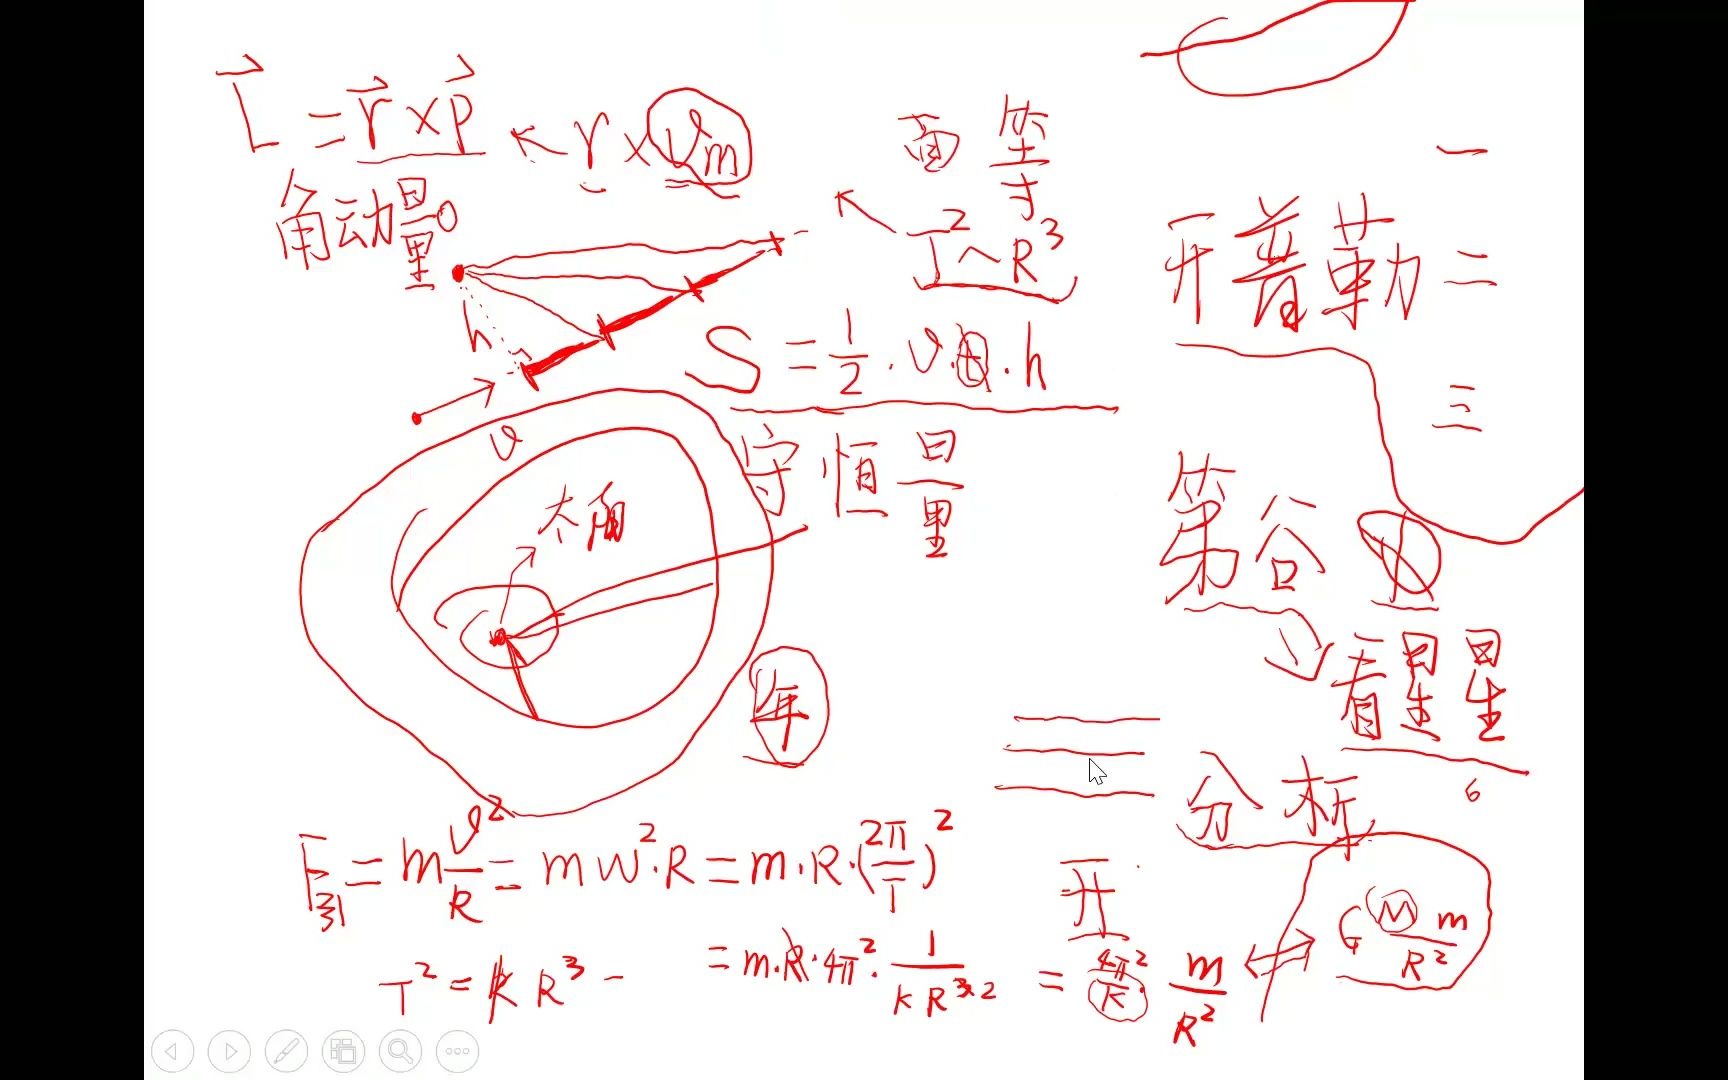 L = r × p ← r × vm
角动量
h
v
面 等
T² ~ R³
S = 1/2 · v · h
守恒量
太阳
年
开普勒
一
二
三
第谷
看星星
分析
6
F引 = m v²/R = mω²·R = m·R·(2π/T)²
T² = kR³
= m·R·4π²· 1/(kR³·²) = 4π²/K · m/R² ↔ G Mm/R²
开